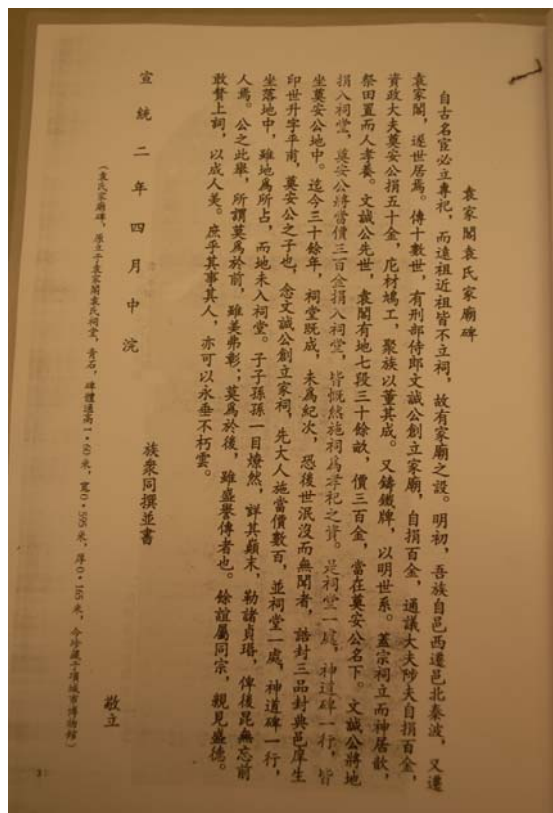 袁家閣袁氏家廟碑
自古名宦必立專祀，而遠祖近祖皆不立祠，故有家廟之設。明初，吾族自邑西遷邑北秦波，又遷
袁家閣，遂世居焉。傳十數世，有刑部侍郎文誠公創立家廟，自捐百金，通議大夫陟夫自捐百金，
資政大夫蓂安公捐五十金，庀材鳩工，聚族以董其成。又鑄鐵牌，以明世系。蓋宗祠立而神居歆，
祭田置而人孝養。文誠公先世，袁閣有地七段三十餘畝，價三百金，當在蓂安公名下。文誠公將地
捐入祠堂，蓂安公將當價三百金捐入祠堂，皆慨然施祠為孝祀之資。是祠堂一處，神道碑一行，皆
坐蓂安公地中。迄今三十餘年，祠堂既成，未為紀次，恐後世泯沒而無聞者，誥封三品封典邑庠生
印世升字平甫，蓂安公之子也，念文誠公創立家祠，先大人施當價數百，並祠堂一處，神道碑一行，
坐落地中，雖地為所占，而地未入祠堂。子子孫孫一目燎然，詳其顛末，勒諸貞珉，俾後昆無忘前
人焉。公之此舉，所謂莫為於前，雖美弗彰；莫為於後，雖盛譽傳者也。餘誼屬同宗，親見盛德。
敢贅上詞，以成人美。庶乎其事其人，亦可以永垂不朽雲。
族眾同撰並書
宣統二年四月中浣
敬立
（袁氏家廟碑，原立于袁家閣袁氏祠堂，青石，碑體通高1·60米，寬0·595米，厚0·165米，今珍藏于項城市博物館）